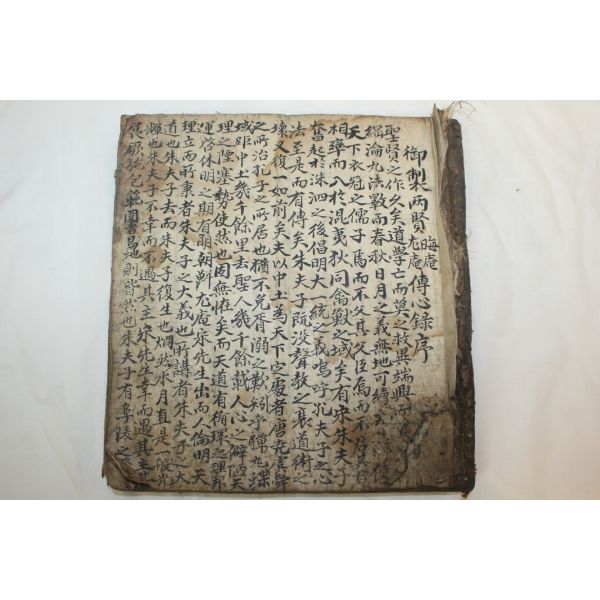 御製兩賢晦庵尤庵傳心錄序
聖賢之作久矣道學亡而莫之救異端興而
綱淪九法斁而春秋日月之義無地可續
天下衣冠之儒子焉而不父其父臣焉而不
相率而入於混夷狄同禽獸之域矣有宋朱夫子
奮起於洙泗之後倡明大一統之義嗚呼孔夫子之心
法至是而有傳矣朱夫子旣没聲教之衰道術之
壞又復一如前矣夫以中土爲天下定處者唐堯
之所治孔子之所居也猶不免胥溺之歎矧乎
域距中土幾千餘里去聖人幾千餘載人心之僻陋天
理之堙塞勢使然也固無恠矣而天道有循環之理邦
運啓休明之期有明朝鮮尤庵宋先生出而人倫明天
理立而所秉者朱夫子之大義也所講者朱夫子之大
道也朱夫子去而朱夫子復生也烟
朱夫子不幸而不遇其主宋先生幸而遇其主
地則皆然也朱夫子有